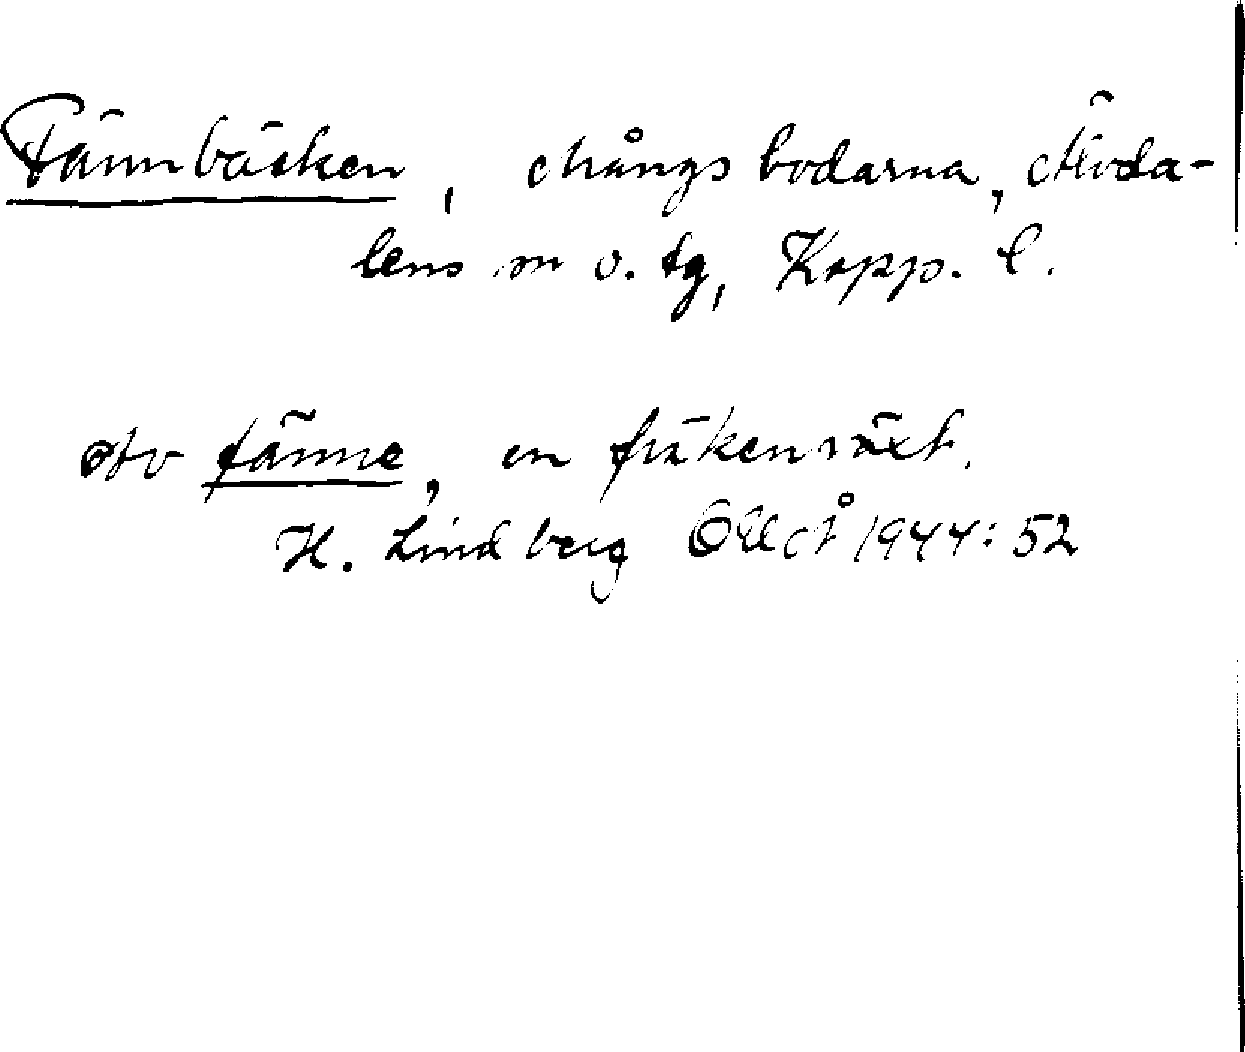 Fännbäcken, Mångsbodarna, Älvda-
lens sn o. tg, Kopp. l.
Av fänne, en fräkenväxt.
H. Lindberg OUÅ 1944: 52